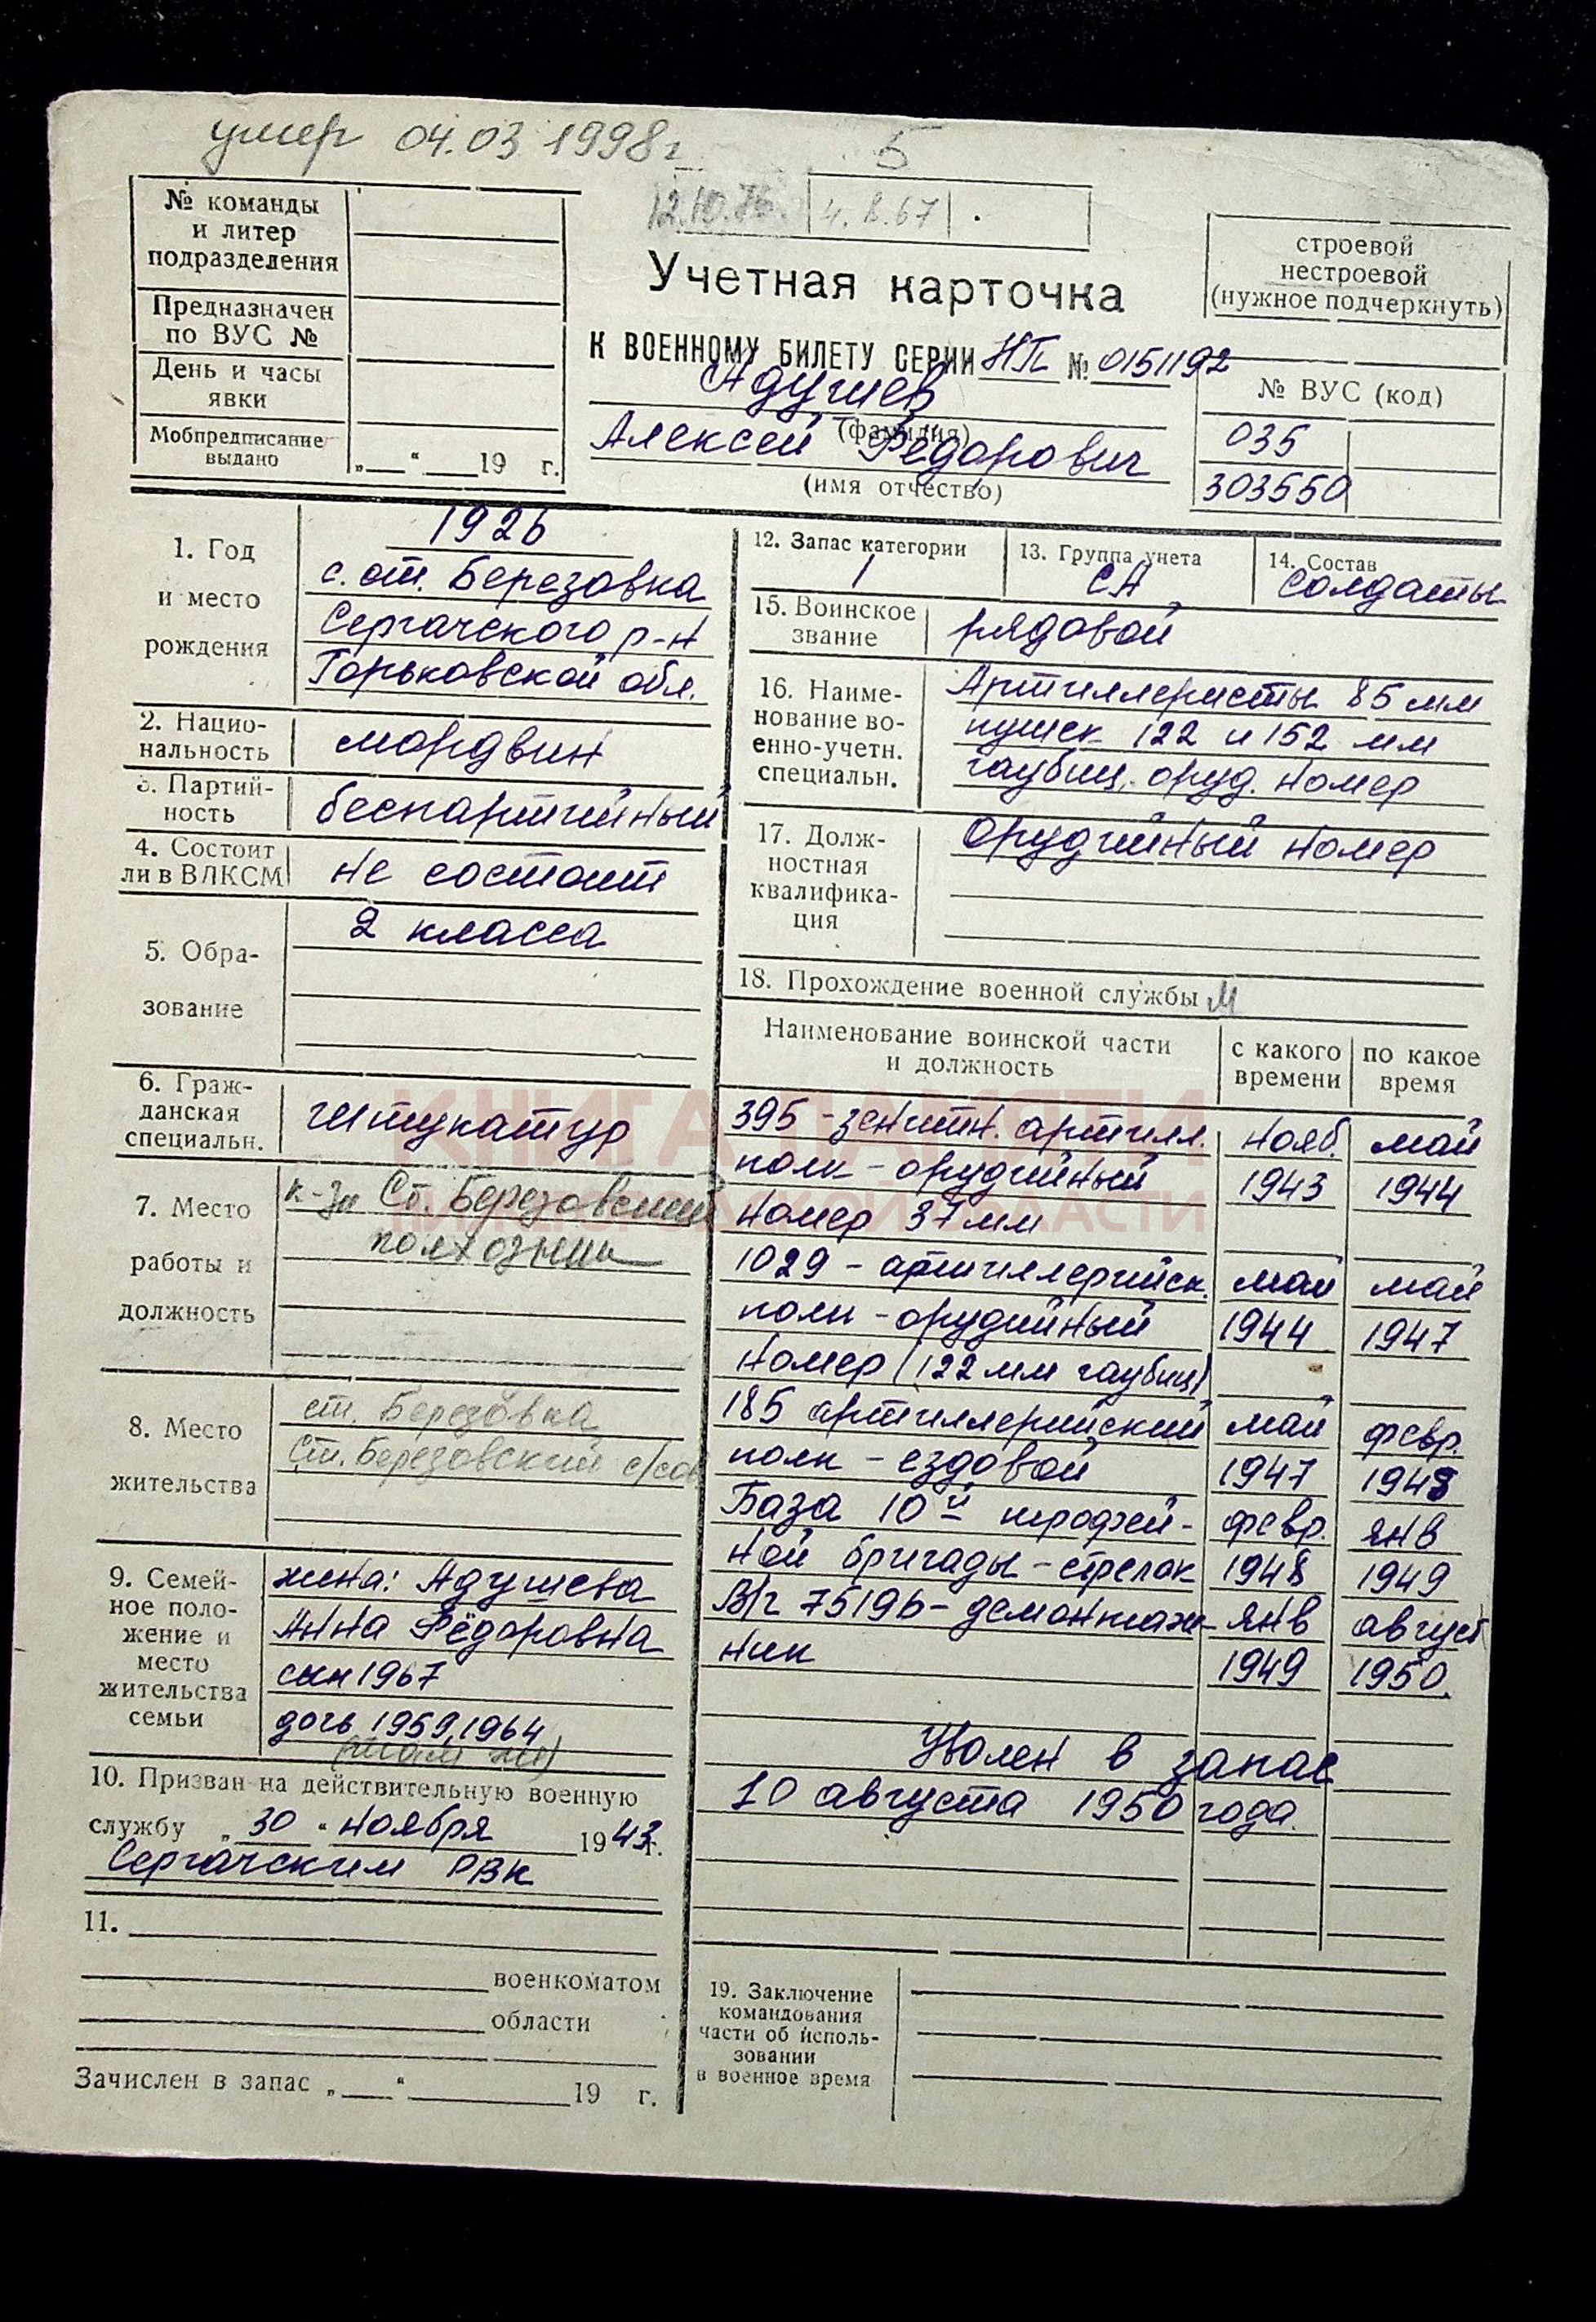 умер 04.03.1998г
5
12.10.76. 4.8.67
№ команды
и литер
подразделения
Предназначен
по ВУС №
День и часы
явки
Мобпредписание
выдано „ “ 19 г.
Учетная карточка
К ВОЕННОМУ БИЛЕТУ СЕРИИ НП № 0151192
Адушев
(фамилия)
Алексей Федорович
(имя отчество)
строевой
нестроевой
(нужное подчеркнуть)
№ ВУС (код)
035
303550
1. Год
и место
рождения
1926
с. ст. Березовка
Сергачского р-н
Горьковской обл.
2. Нацио-
нальность
мордвин
3. Партий-
ность
беспартийный
4. Состоит
ли в ВЛКСМ
не состоит
5. Обра-
зование
2 класса
6. Граж-
данская
специальн.
штукатур
7. Место
работы и
должность
к-з Ст. Березовский
8. Место
жительства
ст. Березовка
Ст. Березовский с/сов
9. Семей-
ное поло-
жение и
место
жительства
семьи
жена: Адушева
Анна Фёдоровна
сын 1967
дочь 1959, 1964
(там же)
10. Призван на действительную военную
службу „ 30 “ ноября 1943г.
Сергачским РВК
11.
военкоматом
области
Зачислен в запас „ “ 19 г.
12. Запас категории
1
13. Группа учета
СА
14. Состав
солдаты
15. Воинское
звание
рядовой
16. Наиме-
нование во-
енно-учетн.
специальн.
Артиллеристы 85 мм
пушек 122 и 152 мм
гаубиц. оруд. номер
17. Долж-
ностная
квалифика-
ция
Орудийный номер
18. Прохождение военной службы М
Наименование воинской части
и должность
с какого
времени
по какое
время
395 - зенитн. артилл. нояб. май
полк - орудийный 1943 1944
номер 37 мм
1029 - артиллерийск. май май
полк - орудийный 1944 1947
номер (122 мм гаубиц)
185 артиллерийский май февр.
полк - ездовой 1947 1948
База 10й трофей- февр. янв
ной бригады - стрелок 1948 1949
В/ч 75196 - демонтаж- янв август
ник 1949 1950.
Уволен в запас
10 августа 1950 года.
19. Заключение
командования
части об исполь-
зовании
в военное время
КНИГА ПАМЯТИ
НИЖЕГОРОДСКОЙ ОБЛАСТИ